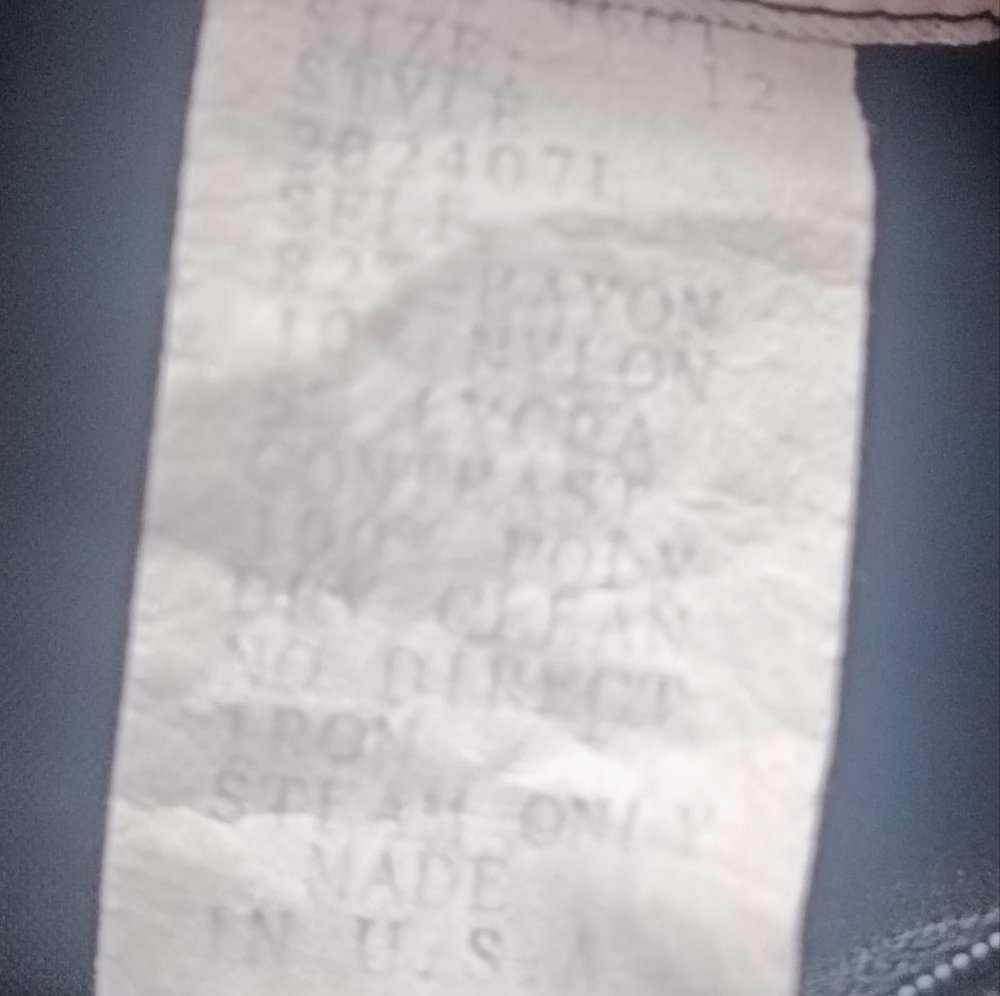 SIZE: 12
STYLE
2024071
SELF
RAYON
10% NYLON
LYCRA
CONTRAST
100% POLY
DRY CLEAN
NO DIRECT
IRON
STEAM ONLY
MADE
IN U.S.A